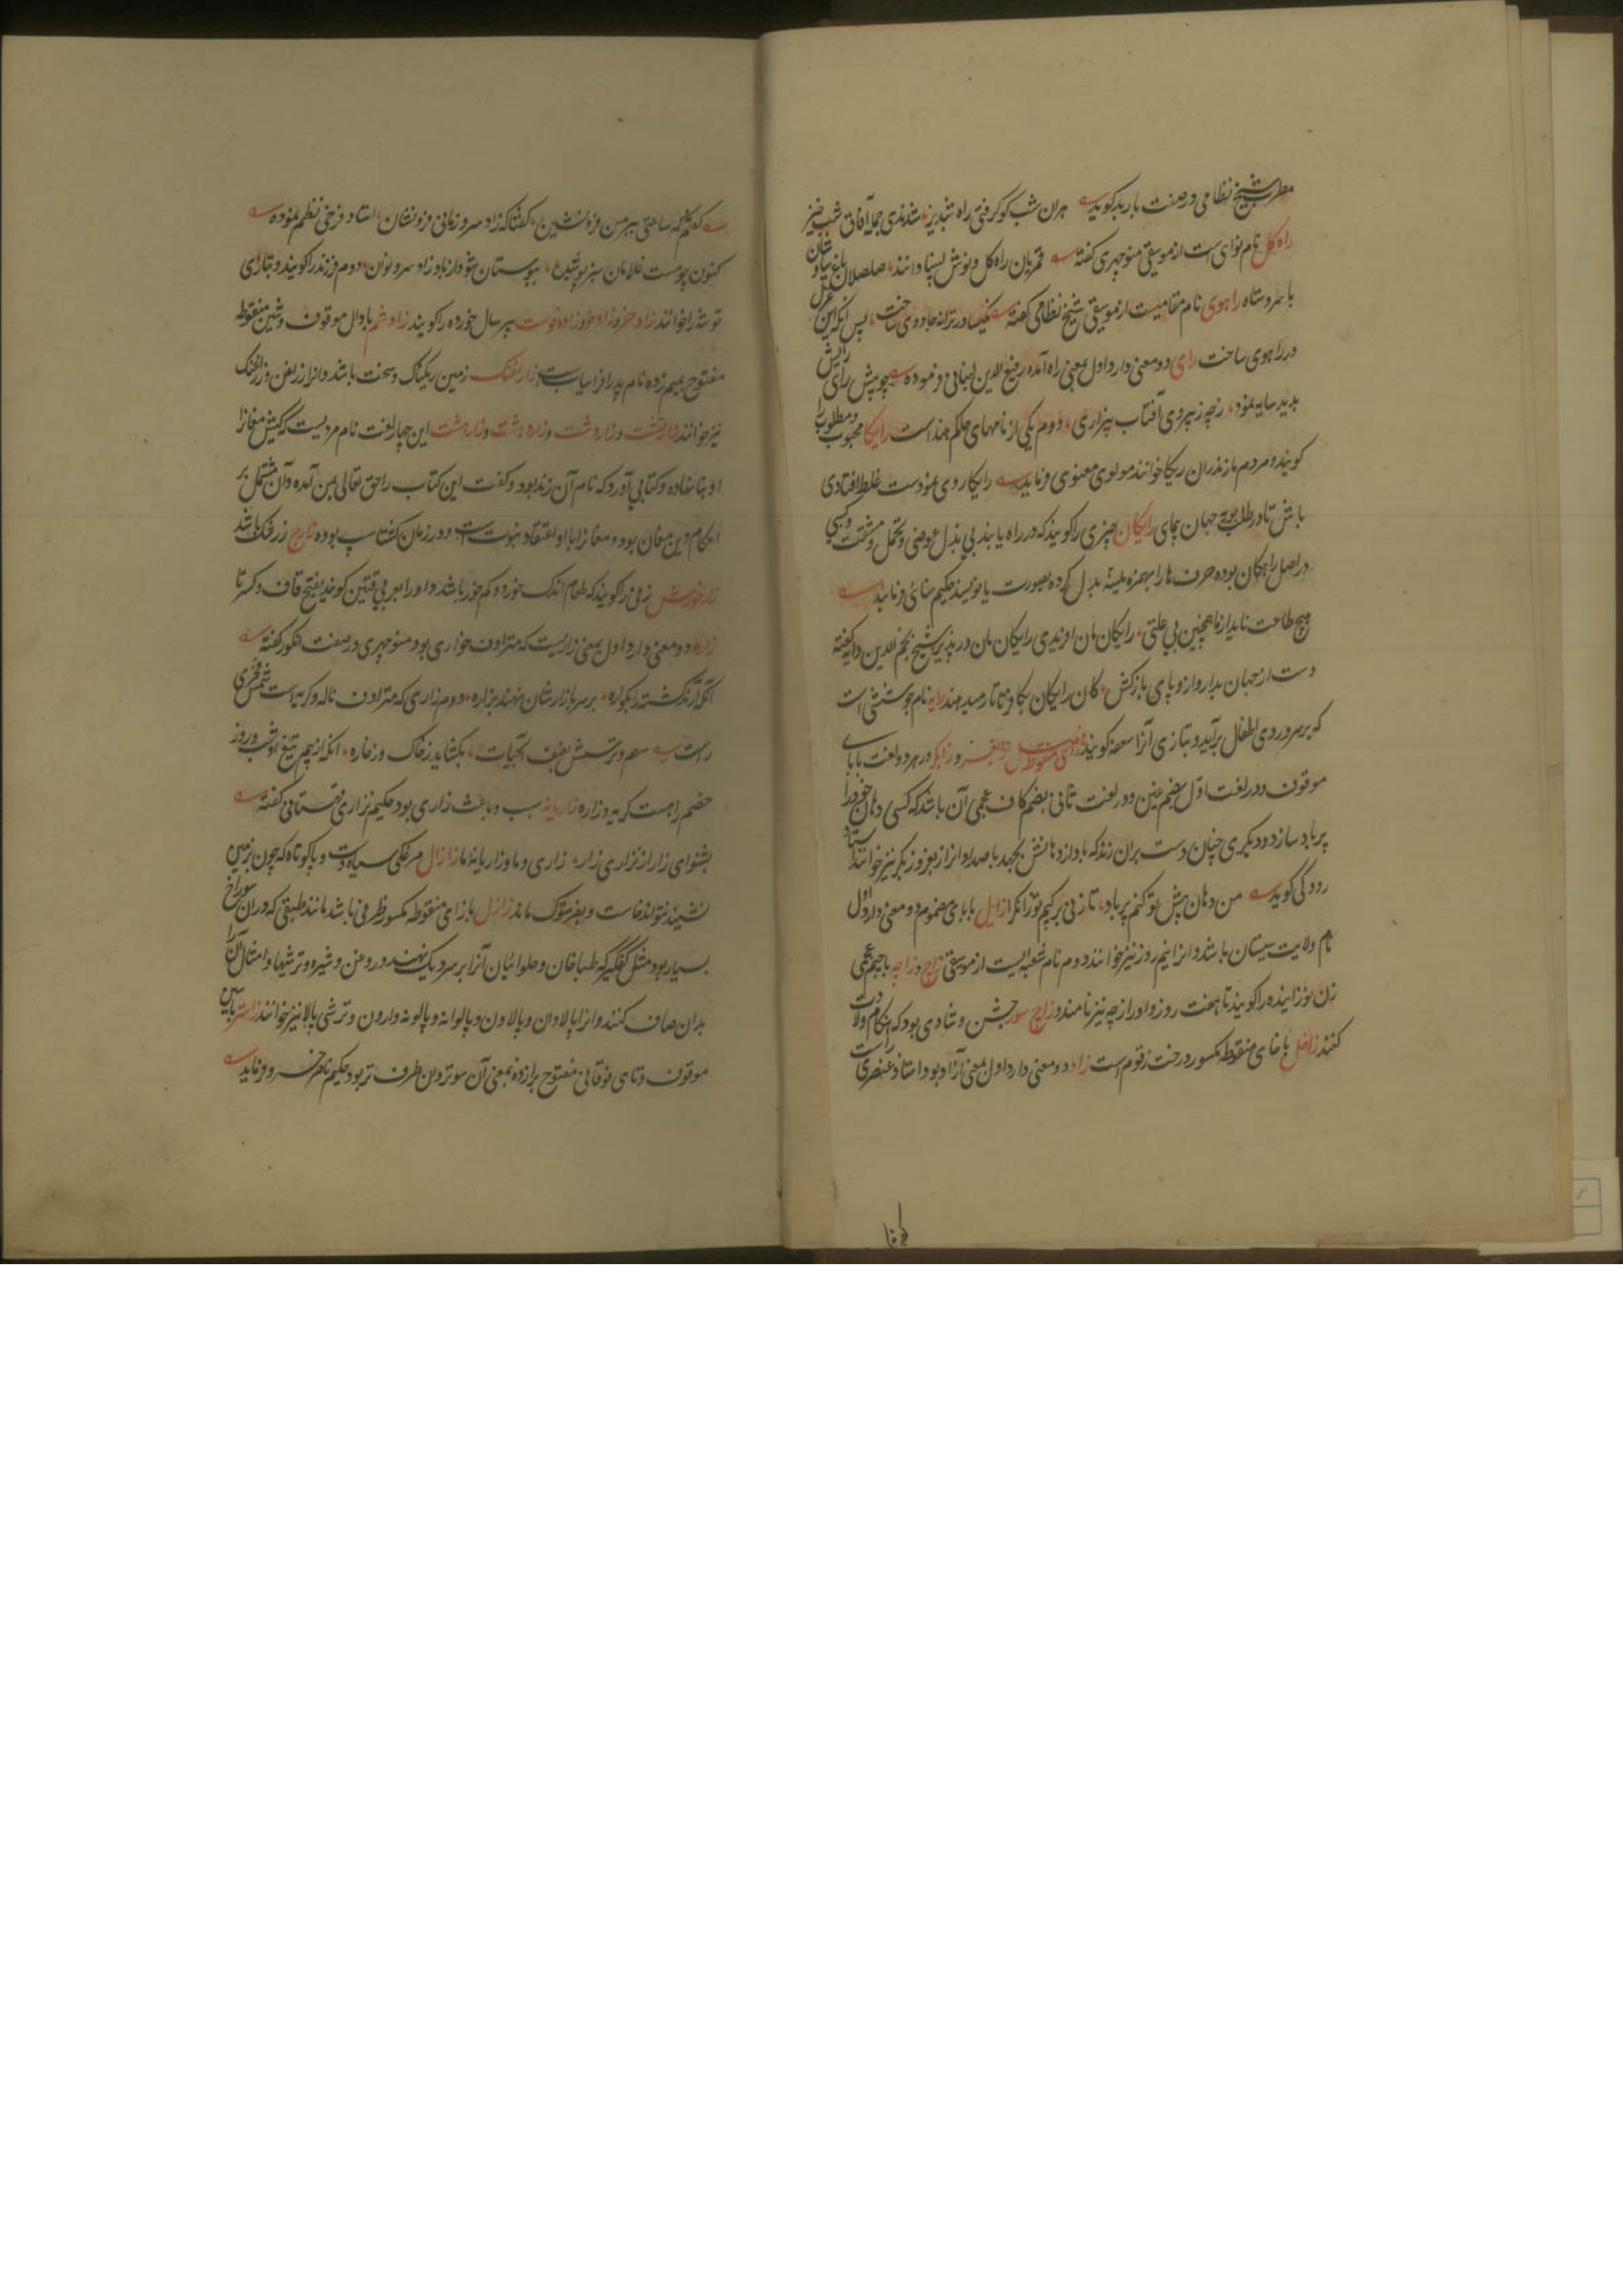 مطرب شیخ نظامی در صفت باربد گوید هران شب کو گرفتی راه شبدیز شدندی جمله آفاق شب خیز
راه کل نام نوای است از موسیقی منوچهری گفته قمریان راه کل و نوش لبینا دانند صلصلان باغ سیاوشان
با سروستاه راهوی نام مقامیست از موسیقی شیخ نظامی گفته نکیسا در ترانه جادوی ساخت پس آنکه این غزل
در راهوی ساخت رای دو معنی دارد اول بمعنی راه آمده رفیع الدین لنبانی فرموده چو پیش رای
پدید سایه نمود زچه زپیروی آفتاب بیزاری دوم یکی از نامهای حکم هند است رایکا محبوب و مطلوب را
کویند و مردم مازندران ریکا خوانند مولوی معنوی فرماید رایکا روی نمودست غلط افتادی
باش تا در طلب پویه جهان پیمای رایکان چیزی را کویند که در راه یابند بی بذل عوضی و تحمل مشقت و کسبی
در اصل راهکان بوده حرف ها را بهمزه ملینه بدل کرده بصورت یا نویسند حکیم سنائی فرماید
هیچ طاعت ناید از ما همچنین بی علتی رایکان مان افریدی رایکان مان در پذیر شیخ نجم الدین دایه گفته
دست از جهان بدار و از و پای باز کش کان رایکان بکاو تاتار میدهند رایه نام جوششی است
که بر سر و روی اطفال براید و بتازی آنرا سعفه کویند زابغر و زابکر در هر دو لغت با بای
موقوف و در لغت اول بضم غین و در لغت ثانی بضم کاف عجمی آن باشد که کسی دهان خود را
پر باد سازد و دیکری چنان دست بران زند که باد از دهانش بجهد با صدا و انرا زبغر و زبکر نیز خوانند استاد
رودکی کوید من دهان پیش تو کنم پر باد تا زنی بر کپم تو زابکرا زابل با بای مضموم دو معنی دارد اول
نام ولایت سیستان باشد و انرا نیمروز نیز خوانند دوم نام شعبه ایست از موسیقی زاج و زاچه با جیم عجمی
زن نوزاینده را کویند تا هفت روز و او را زچه نیز نامند و زاج سور جشن و شادی بود که هنکام ولادت
کنند زاخل با خای منقوط مکسور درخت زقوم است زاد دو معنی دارد اول بمعنی آزاد بود استاد عنصری راست
گفتم که ساعتی ببر من فرو نشین گفتا که زاد سرو زمانی فرو نشان استاد فرخی نظم نموده
کنون چوست غلامان سبز پوشیده ببوستان شود از باد زاد سرو نوان دوم فرزند را کویند و بتازی
توشه را خوانند زاد خر و زاد خور و زاد خوست پیر سال خورده را کویند زادشم با دال موقوف و شین منقوطه
مفتوح بمیم زده نام پدر افراسیاب است زاراغنک زمین ریکناک و سخت باشد و انرا زراغن و زراغنک
نیز خوانند زارتشت و زاردشت و زاره تشت و زارهشت این چهار لغت نام مردیست که کیش مغانرا
او بنا نهاده و کتابی آورد که نام آن زند بود و گفت این کتاب را حق تعالی بمن آمده و آن مشتمل بر
احکام دین مغان بود و مغانرا با او اعتقاد نبوت است و در زمان کشتاسپ بوده زارج زرشک باشد
زارخورش زنی را کویند که طعام اندک خورد و کم خور باشد و او را بعربی قتین کویند بفتح قاف و کسر تا
زاره دو معنی دارد اول بمعنی زاریست که مترادف خواری بود منوچهری در صفت انکور گفته
بر سر بازارشان نهند بزاره دوم زاری که مترادف ناله و کریه است شمس فخری
راست سهم و ترسش بعنف بکشاید زخاک و زخاره انکه از بیم تیغ او شب و روز
خصم را هست کریه و زاره زاریانه سبب و باعث زاری بود حکیم نزاری قهستانی گفته
بشنو ای زار از نزاری زار زاری و ما و زاریانه ما زازال مرغکی سیاه است و پا کوتاه که چون بر زمین
نشیند نتواند خاست و بفرستوک ماند زازل با زای منقوطه مکسور ظرفی باشد مانند طبقی که دران سوراخ
بسیار بود مثل کفکیر که طباخان و حلوائیان آنرا بر سر دیک نهند و روغن و شیره و ترشیها و امثال آن را
بدان صاف کنند و انرا پالاوان و پالاون و پالوانه و پالونه و ارون و ترشی پالا نیز خوانند زاستر با سین
موقوف و تای فوقانی مفتوح برا زده بمعنی آن سوتر و ان طرف تر بود حکیم ناصر خسرو فرماید